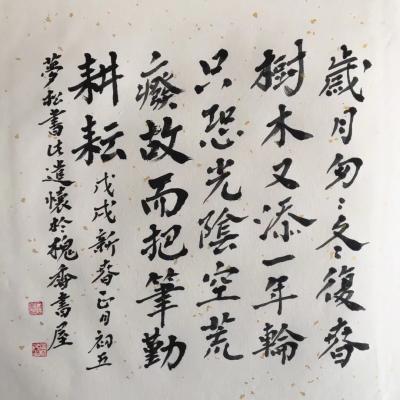 歲月匆:冬復春
樹木又添一年輪
只恐光陰空荒
廢故而把筆勤
耕耘
戊戌新春正月初五
夢松書法遣懷於槐齋書屋